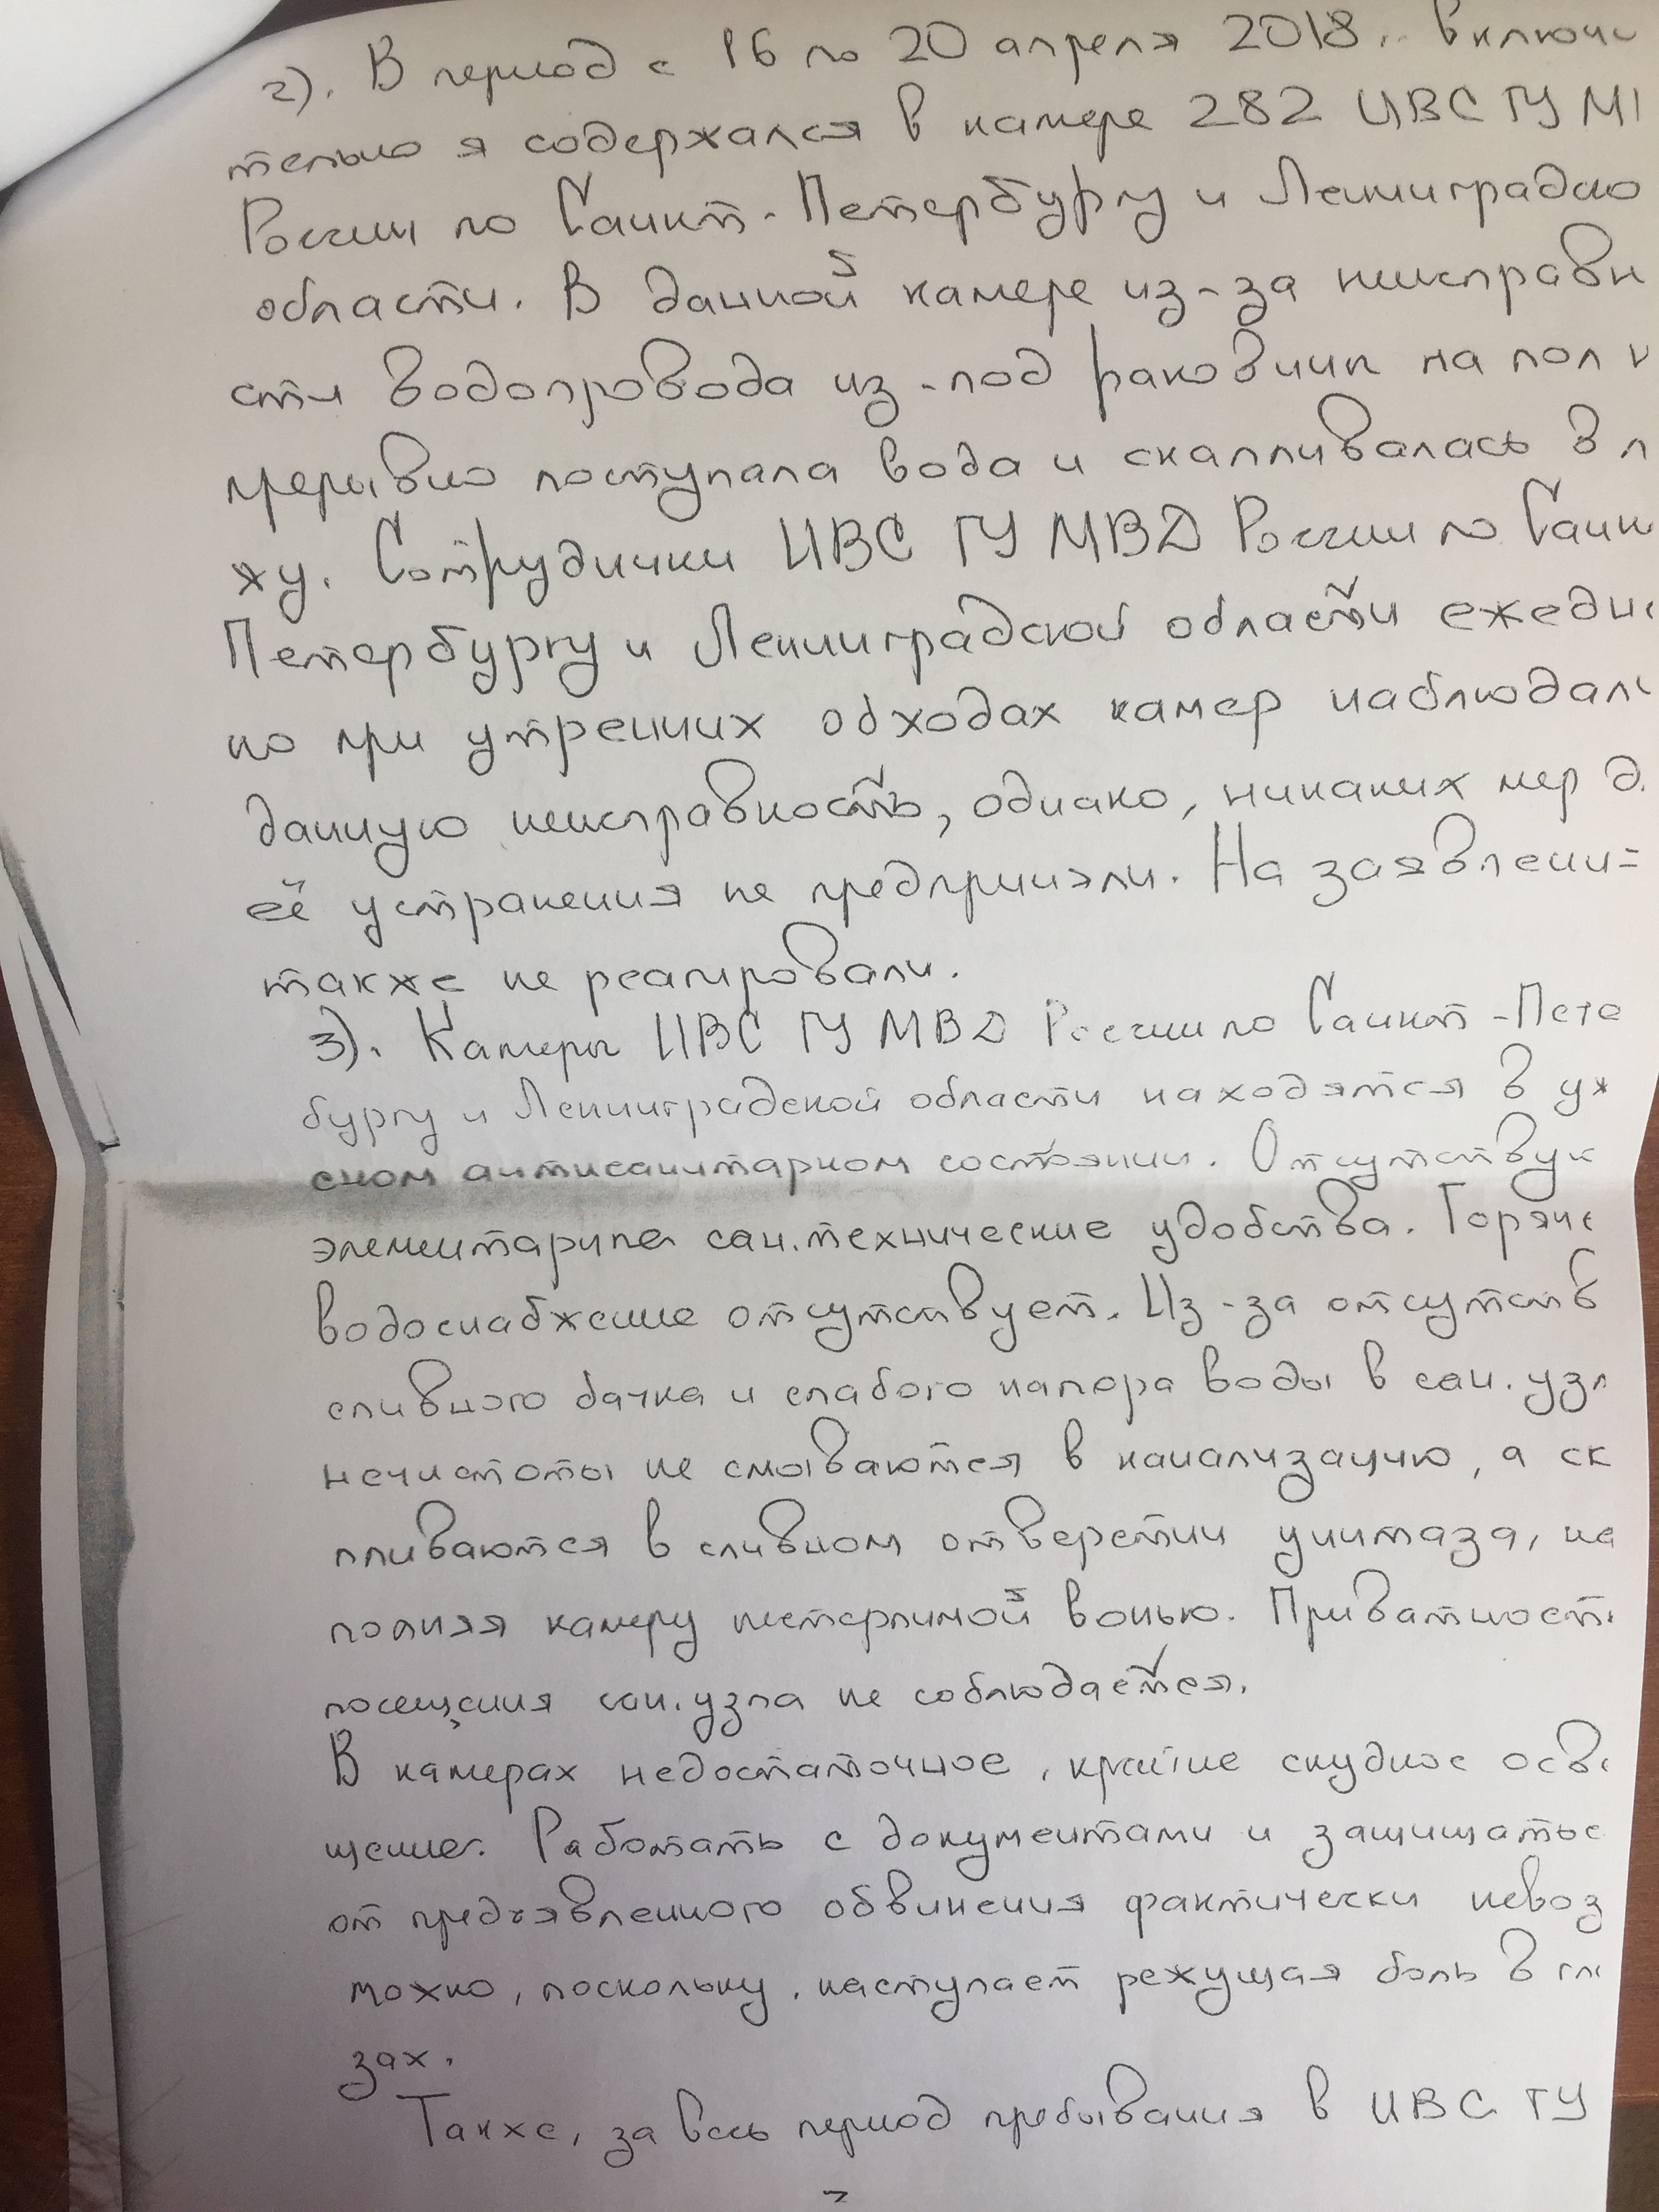 2). В период с 16 по 20 апреля 2018г. включи
тельно я содержался в камере 282 ИВС ГУ М
России по Санкт-Петербургу и Ленинградско
области. В данной камере из-за неисправн
сти водопровода из-под раковины на пол
прерывно поступала вода и скапливалась в л
жу. Сотрудники ИВС ГУ МВД России по Санк
Петербургу и Ленинградской области ежедне
но при утренних обходах камер наблюдал
данную неисправность, однако, никаких мер д
её устранения не предприняли. На заявлени
также не реагировали.
3). Камеры ИВС ГУ МВД России по Санкт-Пете
бургу и Ленинградской области находятся в уж
сном антисанитарном состоянии. Отсутствую
элементарные сан.технические удобства. Горяче
водоснабжение отсутствует. Из-за отсутств
сливного бачка и слабого напора воды в сан.узл
нечистоты не смываются в канализацию, а ск
пливаются в сливном отверстии унитаза, на
полняя камеру нетерпимой вонью. Приватност
посещения сан.узла не соблюдается.
В камерах недостаточное, крайне скудное осве
щение. Работать с документами и защищатьс
от предъявленного обвинения фактически невоз
можно, поскольку, наступает режущая боль в гла
зах.
Также, за весь период пребывания в ИВС ГУ